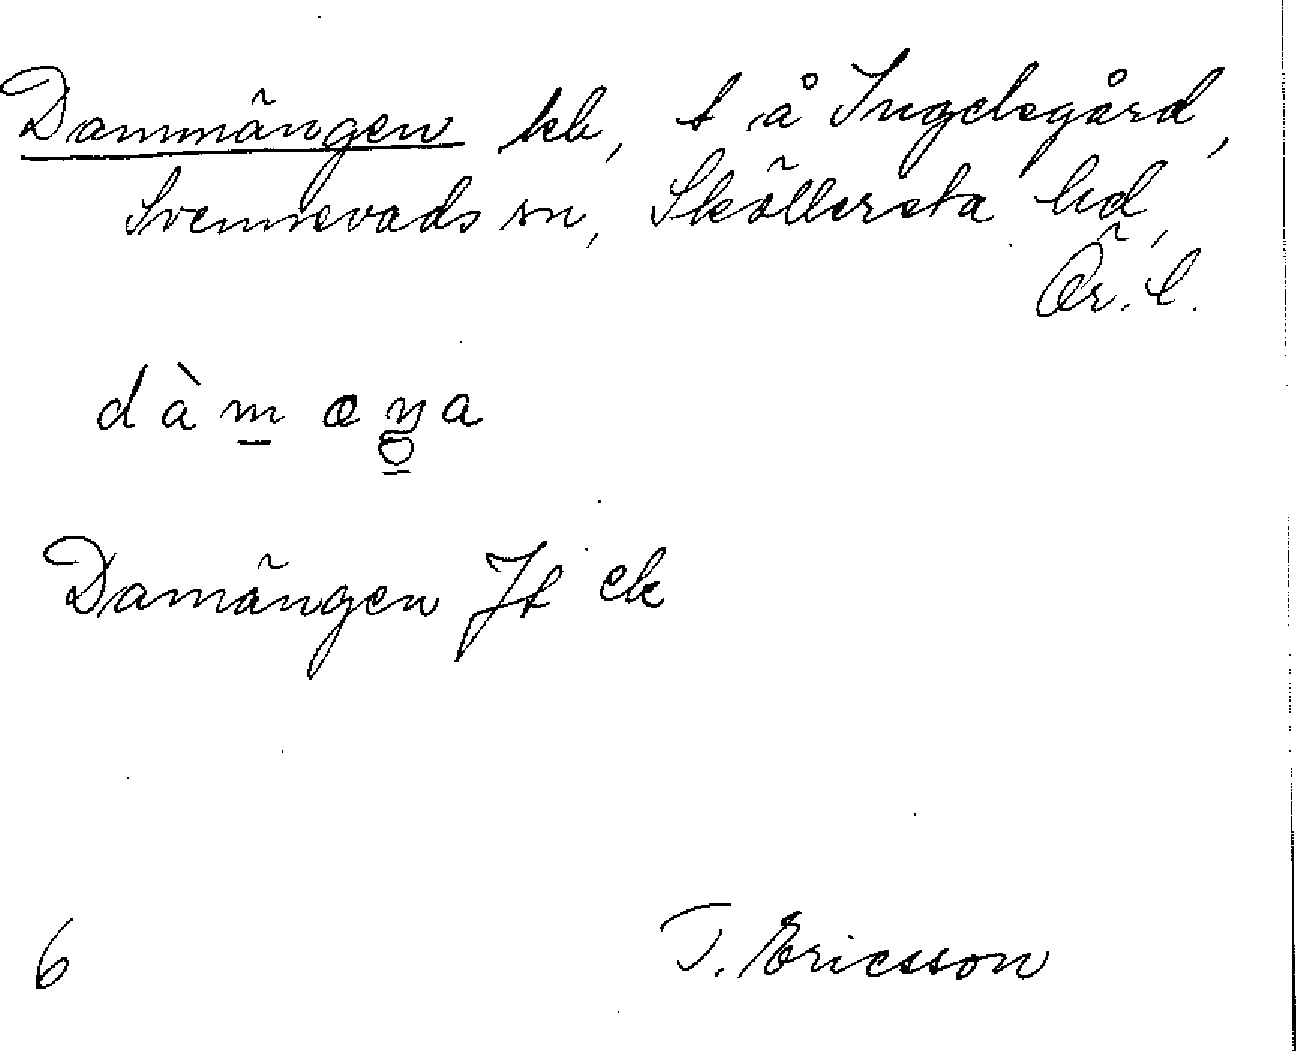 Dammängen hb, t å Ingelsgård,
Svennevads sn, Sköllersta hd,
Ör. l.
dàm æŋa
Damängen Jt ek
6 T. Ericsson